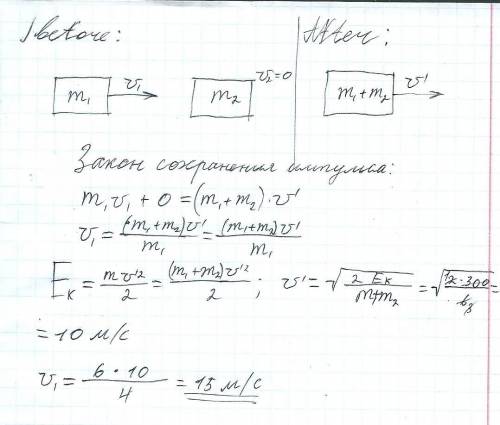 before: After:
m₁ v₁ m₂ v₂=0 m₁+m₂ v'
Закон сохранения импульса:
m₁v₁ + 0 = (m₁+m₂)·v'
v₁ = (m₁+m₂)v'/m₁ = (m₁+m₂)v'/m₁
Eₖ = mv'²/2 = (m₁+m₂)v'²/2 ; v' = √(2Eₖ/(m₁+m₂)) = √(2·300/6) =
= 10 м/с
v₁ = 6·10/4 = 15 м/с